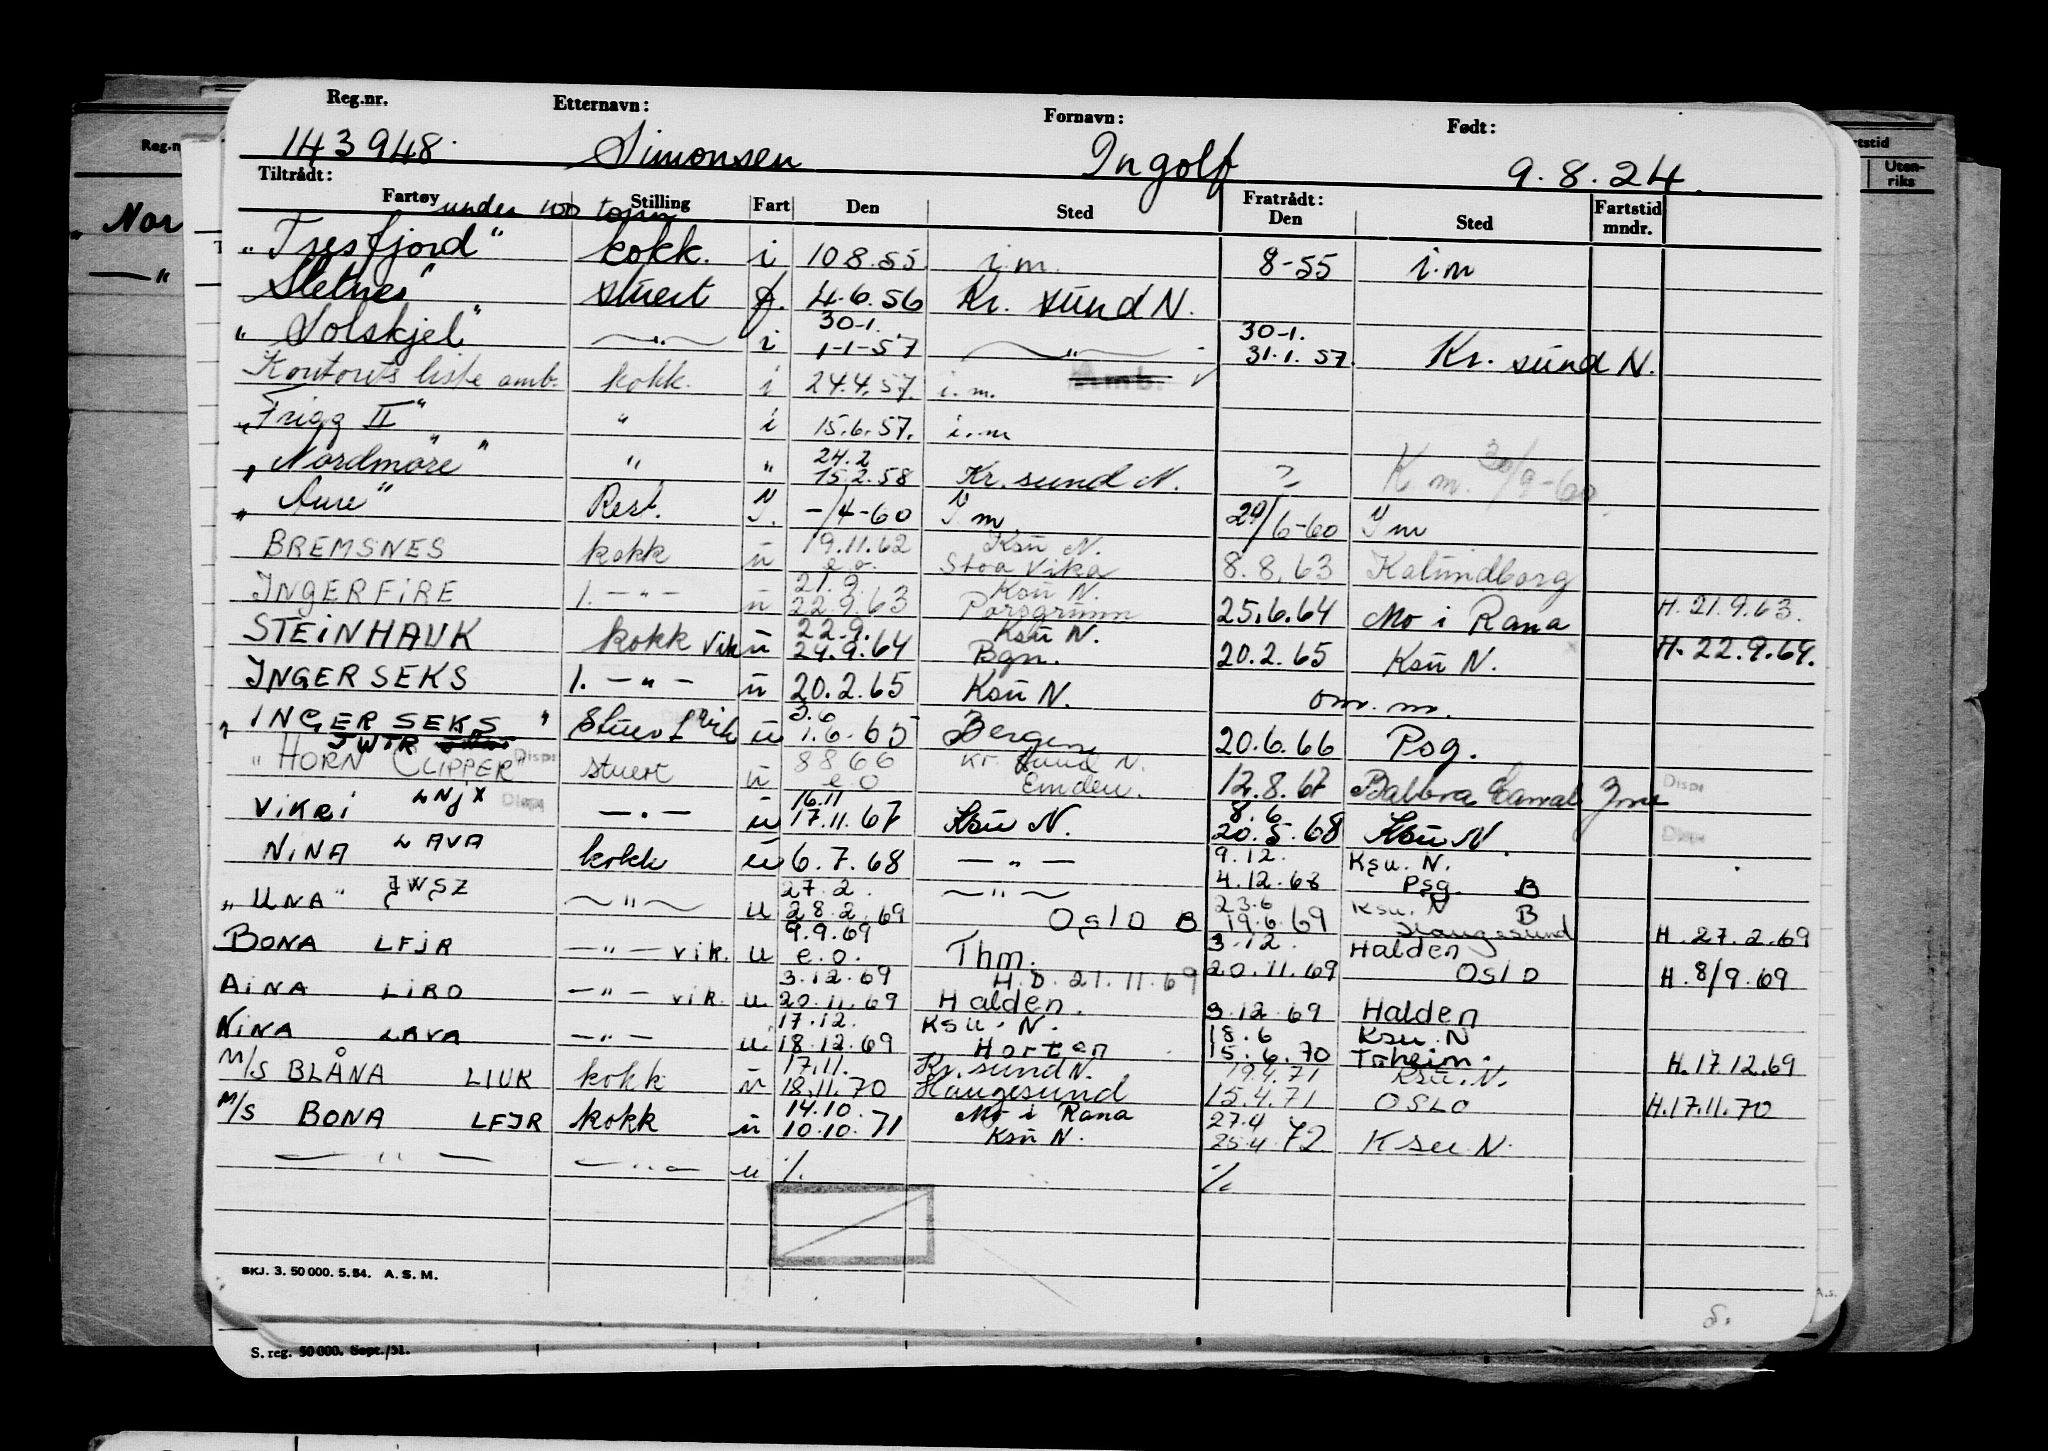 Reg.nr. Etternavn: Fornavn: Født:
143948. Simonsen Ingolf 9.8.24.
Tiltrådt: Fratrådt:
Fartøy Stilling Fart Den Sted Den Sted Fartstid mndr.
under 100 tonn
"Tresfjord" kokk. i 10 8.55 i.m. 8-55 i.m
Sletnes" stuert f. 4.6.56 Kr. sund N.
30-1. 30-1.
"Solskjel" —"— i 1-1-57 —"— 31.1.57. Kr. sund N.
Kontorets liste amb. kokk. i 24.4.57. i.m. Amb.
"Frigg II" " i 15.6.57. i.m
24.2 30/9-60
"Nordmøre" " " 15.2.58 Kr. sund N. ? K m.
"Aure" Rest. I. -/4-60 I m. 29/6-60 I m
BREMSNES kokk u 19.11.62 Ksu N.
e.o. Stoa Vika 8.8.63 Kalundborg
21.9. Ksu N.
INGERFIRE 1. -"- u 22.9.63 Porsgrunn 25.6.64 Mo i Rana H. 21.9.63.
22.9. Ksu N.
STEINHAUK kokk vik u 24.9.64 Bgn. 20.2.65 Ksu N. H. 22.9.64.
INGER SEKS 1. -"- u 20.2.65 Ksu N. om. m.
3.6
"INGER SEKS" Stuert vik u 1.6.65 Bergen 20.6.66 Psg.
JWTR
"HORN CLIPPER" Disp stuert u 8 8 66 Kr. sund N.
e o Emden. 12.8.67 Balboa Canal Zone Disp
16.11 8.6
VIKRI LNJX Disp -"- u 17.11.67 Ksu N. 20.5.68 Ksu N. Disp
NINA LAVA kokk u 6.7.68 -"- 9.12. Ksu. N.
4.12.68 Psg. B
27.2. 23.6 Ksu. N
"UNA" JWSZ —"— u 28.2.69 Oslo B 19.6.69 Haugesund B H. 27.2.69
9.9.69 3.12. Halden
BONA LFJR -"- vik. u e.o. Thm. 20.11.69 Oslo H. 8/9.69
3.12.69 H.D. 21.11.69
AINA LIRO -"- vik. u. 20.11.69 Halden. 3.12.69 Halden
17.12. Ksu. N. 18.6 Ksu. N
NINA LAVA -"- u 18.12.69 Horten 15.6.70 Trheim. H. 17.12.69
17.11. Kr. sund N. 19.4.71 Ksu. N.
M/S BLÅNA LIUK kokk u 18.11.70 Haugesund 15.4.71 OSLO H. 17.11.70
14.10. Mo i Rana 27.4
M/S BONA LFJR kokk u 10.10.71 Ksu N. 25.4.72 Ksu N.
—"— —"— u %. %.
SKJ. 3. 50 000. 5. 54. A. S. M.
S.
S. reg. 50 000. Sept./51.
Reg.n
"Nor
—"
rtstid
Uten-
riks
A.s.